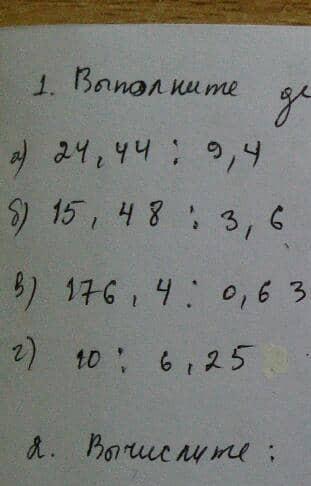 1. Выполните де
а) 24,44 : 9,4
б) 15,48 : 3,6
в) 176,4 : 0,63
г) 10 : 6,25
2. Вычислите :